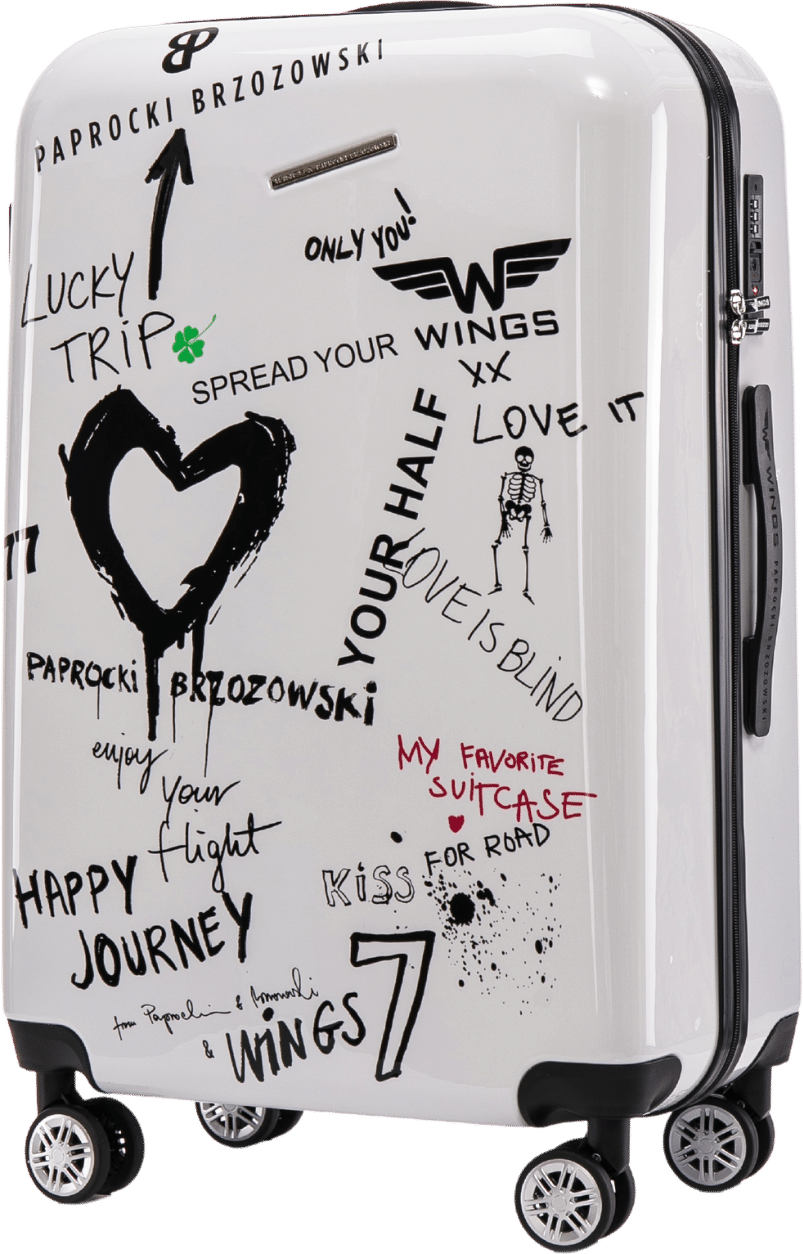 PAPROCKI BRZOZOWSKI
ONLY YOU!
LUCKY
TRiP
W
WINGS
SPREAD YOUR
XX
LOVE IT
YOUR HALF
LOVE IS BLIND
77
PAPROCKi BRZOZOWSKi
enjoy
your
flight
MY FAVORiTE
SUiTCASE
FOR ROAD
KiSS
HAPPY
JOURNEY
7
from Paprocki & Brzozowski
& WiNGS
WINGS
WINGS PAPROCKI BRZOZOWSKI